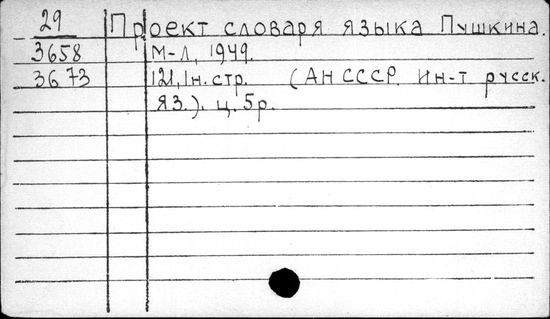 29 Проект словаря языка Пушкина.
3658 М-Л, 1949.
3673 121, 1н. стр. (АН СССР. Ин-т русск.
яз.). ц. 5р.